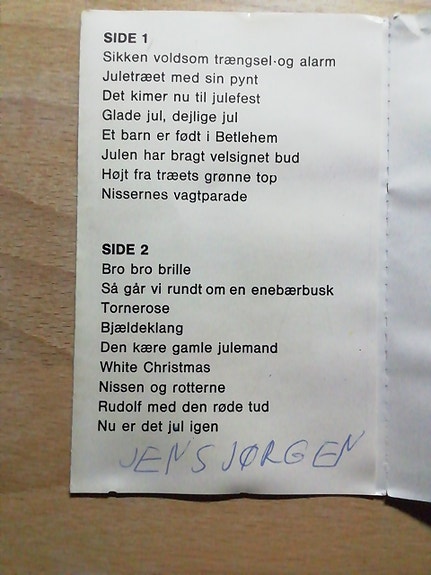 SIDE 1
Sikken voldsom trængsel og alarm
Juletræet med sin pynt
Det kimer nu til julefest
Glade jul, dejlige jul
Et barn er født i Betlehem
Julen har bragt velsignet bud
Højt fra træets grønne top
Nissernes vagtparade
SIDE 2
Bro bro brille
Så går vi rundt om en enebærbusk
Tornerose
Bjældeklang
Den kære gamle julemand
White Christmas
Nissen og rotterne
Rudolf med den røde tud
Nu er det jul igen
JENS JØRGEN